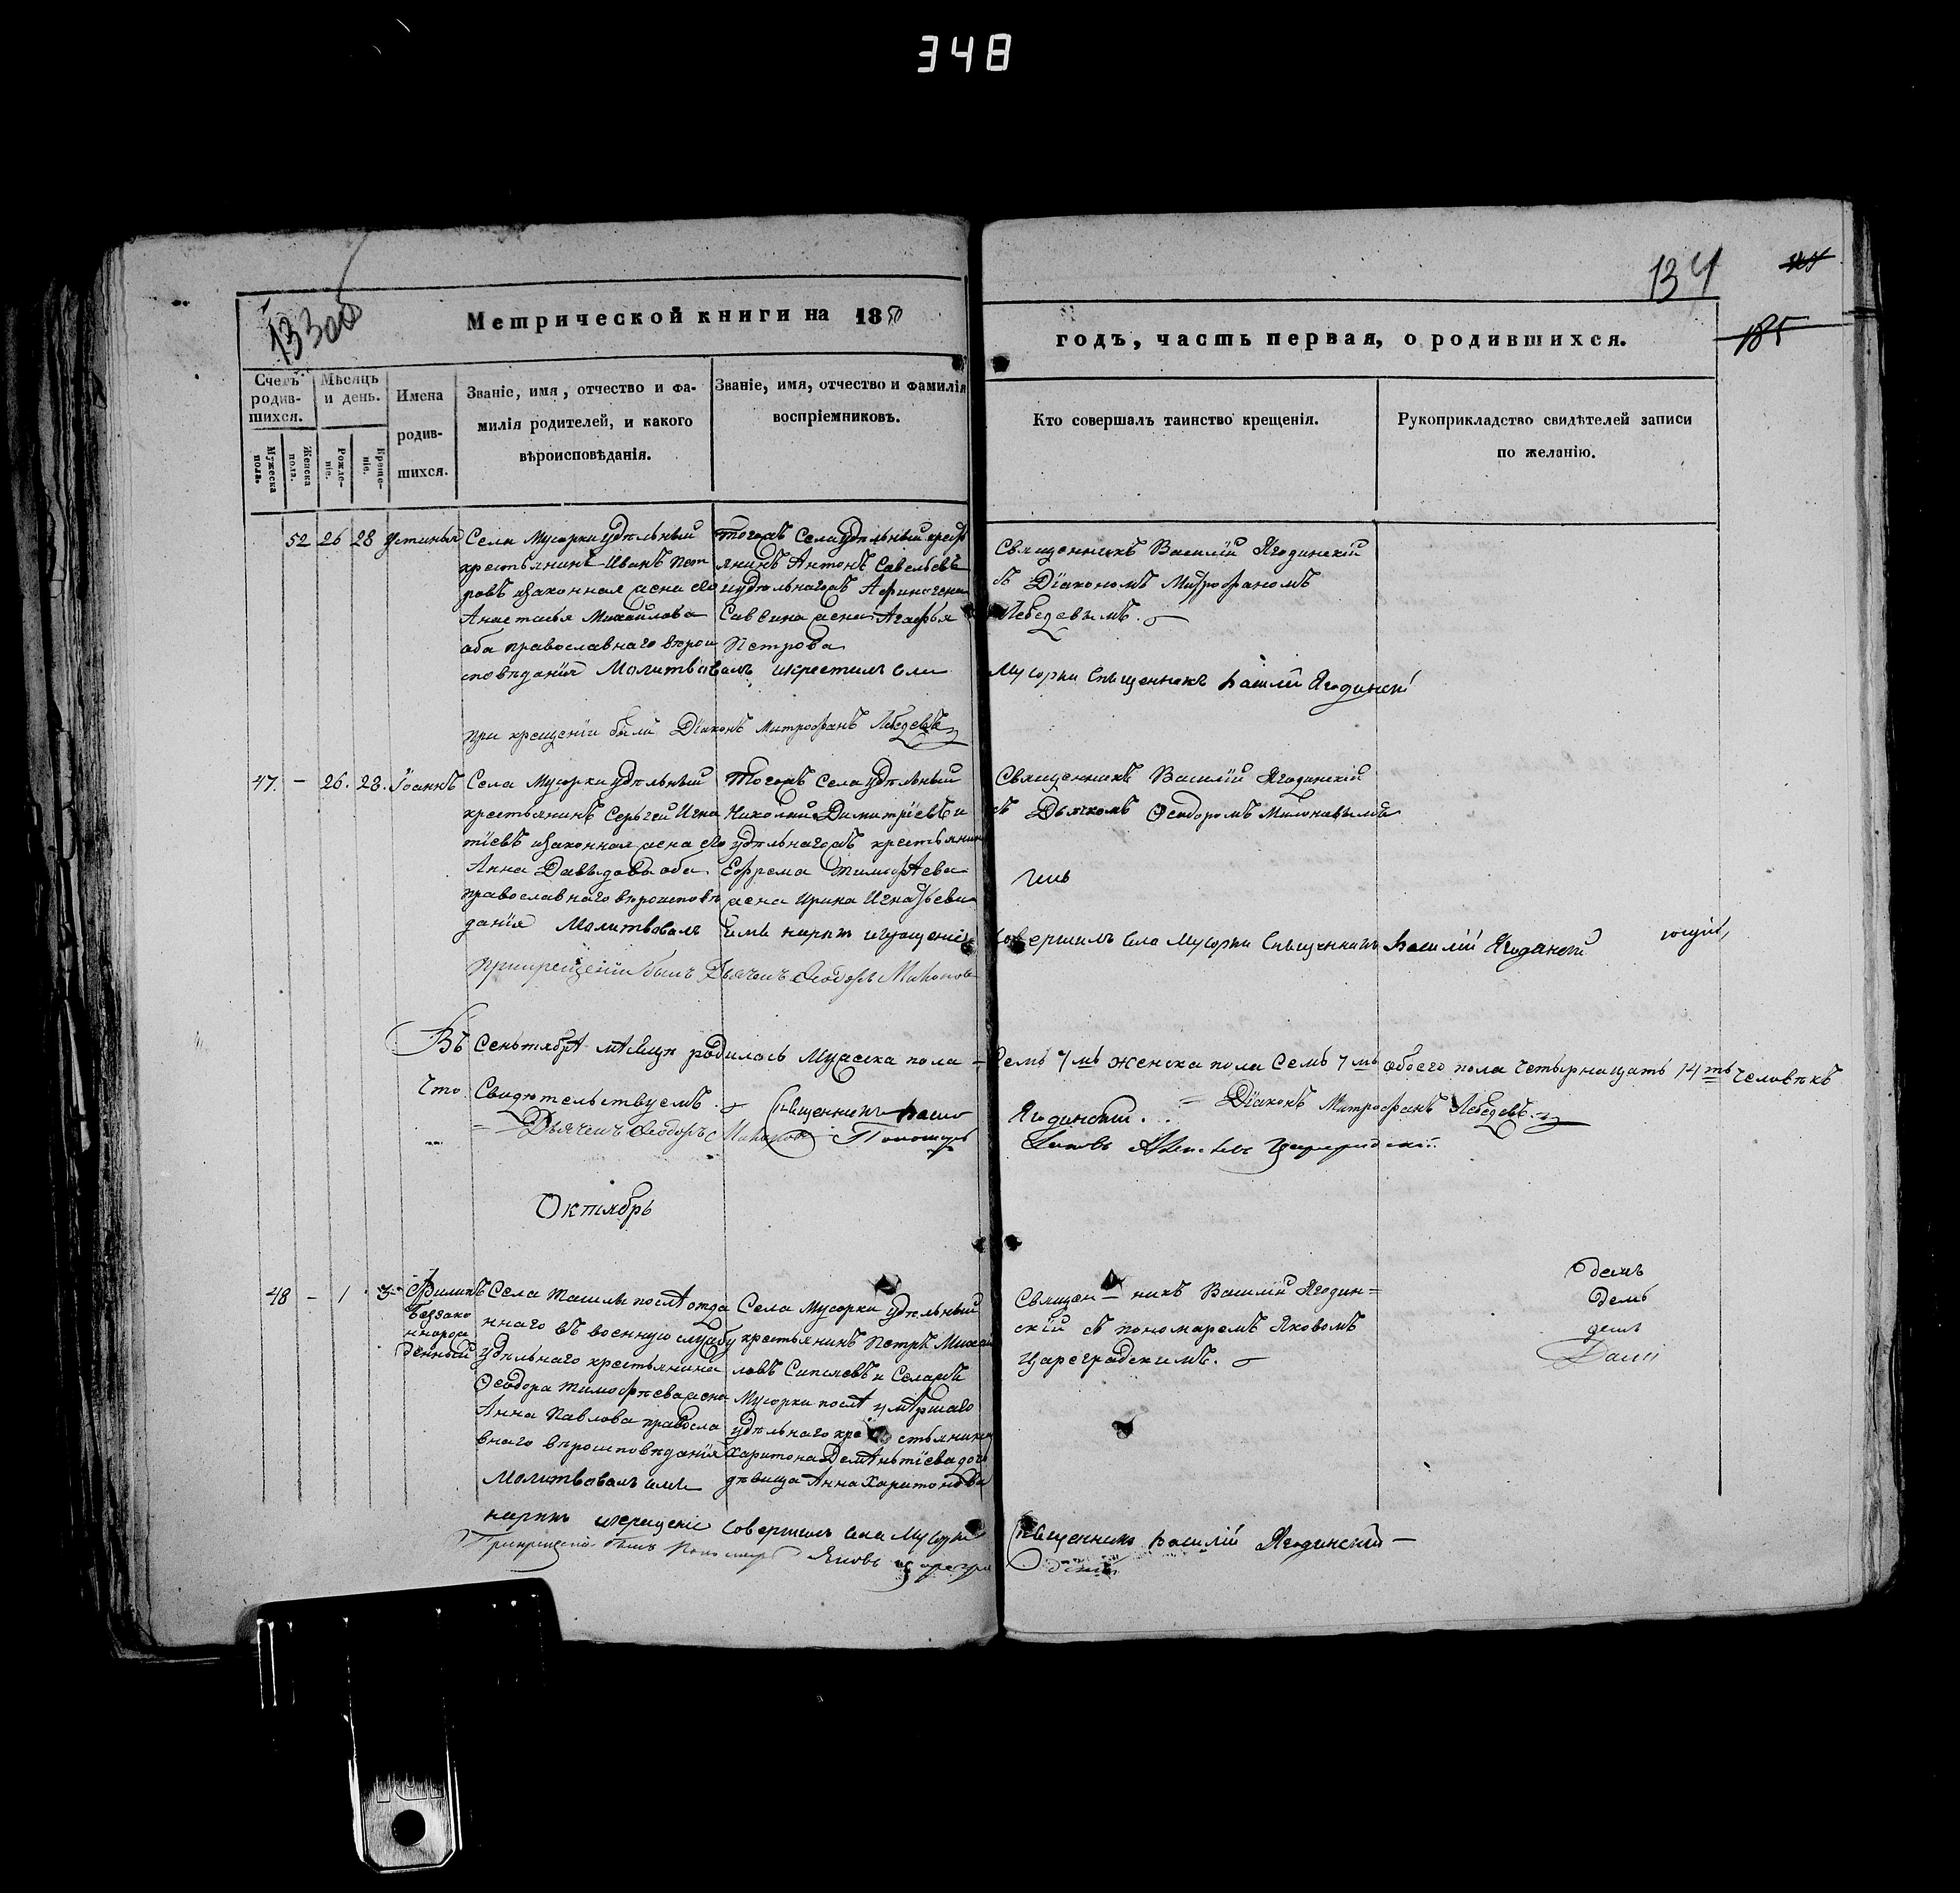 348
133об
134
185
Метрической книги на 18
годъ, часть первая, о родившихся.
Счетъ родившихся.
Мужеска пола.
Женска пола.
Мѣсяцъ и день.
Рожденіе.
Крещеніе.
Имена родившихся.
Званіе, имя, отчество и фамилія родителей, и какого вѣроисповѣданія.
Званіе, имя, отчество и фамилія воспріемниковъ.
Кто совершалъ таинство крещенія.
Рукоприкладство свидѣтелей записи по желанію.
52 26 28 Устинья
Села Мусорки удѣльный
крестьянинъ Иванъ Пет
ровъ изаконная жена его
Анастасья Михайлова
оба православнаго вѣрои
сповѣданія
Тогожъ Села удѣльный крест
янинъ Антонъ Савельевъ
иудѣльнагожъ
Саввина жена Агафья
Петрова
Священникъ Василій Ягодинскій
съ Діакономъ Митрофаномъ
Лебедевымъ.
Молитвовалъ икрестилъ Села Мусорки Священникъ Василій Ягодинскій
при крещеніи былъ Діаконъ Митрофанъ Лебедевъ
47. – 26. 28. Іоаннъ
Села Мусорки удѣльный
крестьянинъ Сергей Игна
тіевъ изаконная жена его
Анна Давыдова оба
православнаго вѣроисповѣ
данія
Тогожъ села удѣльный
Николай Димитріевъ и
удѣльнагожъ крестьянин
Ефрема Тимофѣева
жена Ирина Игнатьева
Священникъ Василій Ягодинскій
съ Дьячкомъ Феодоромъ Милоновымъ
Молитвовалъ имя нарекъ икрещеніе совершилъ Села Мусорки Священникъ Василій Ягодинскій
прикрещеніи былъ Дьячекъ Феодоръ Милонов
Въ Сентябрѣ мѣсяцѣ родилось Мужеска пола – Семь 7мь Женска пола Семь 7мь обоего пола четырнацать 14ть человѣкъ
Что Свидѣтельствуемъ Священникъ Васил Ягодинскій. = Діаконъ Митрофанъ Лебедевъ
= Дьячекъ Феодоръ Милонов Пономарь
Октябрь
48 – 1 3 Филипъ
Беззако
ннорож
денный
Села Ташлы послѣ отда
ннаго въ военную службу
удѣльнаго крестьянина
Феодора Тимофѣева жена
Анна Павлова правосла
внаго вѣроисповѣданія
Села Мусорки удѣльный
крестьянинъ Петръ Михаи
ловъ и Селажъ
Мусорки послѣ умѣршаго
удѣльнаго крестьянина
Харитона Дементіева доч
дѣвица Анна Харитонова
Священникъ Василій Ягодин=
скій съ пономаремъ Яковомъ
Цареградскимъ.
Молитвовалъ имя
нарекъ икрещеніе совершилъ села Мусорки Священникъ Василій Ягодинскій –
Прикрещеніи былъ Пономарь Яковъ Цареград